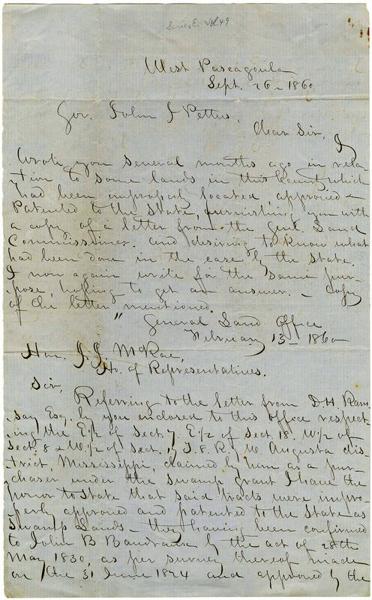 Series E. Vol 49
West Pascagoula
Sept. 26 - 1860
Gov. John J Pettus.
Dear Sir, I
wrote you several months ago in rela-
tion to some lands in this County which
had been improperly located, approved &
Patented to the State, furnishing you with
a copy of a letter from the Genl Land
Commissioner and desiring to know what
had been done in the case by the State.
I now again write for the same pur-
pose, hoping to get an answer. - Copy
of the letter mentioned.
"General Land Office
February 13 - 1860
Hon. J. J. McRae,
H. of Representatives.
Sir,
Referring to the letter from D. H. Ram-
say Esq. by you enclosed to this office respect-
ing the E/2 of Sect. 7 E 1/2 of Sect 18. W/2 of
Sect. 8 & W. 1/2 of Sect. 17 S. R. W. Augusta dis-
trict, Mississippi, claimed by him as a pur-
chaser under the Swamp Grant I have the
honor to State that said tracts were impro-
perly approved and patented to the State as
Swamp Lands - they having been confirmed
to John B Baudrau by the act of 28th
May 1830, as per survey thereof made
on the 31 June 1844 and approved by the